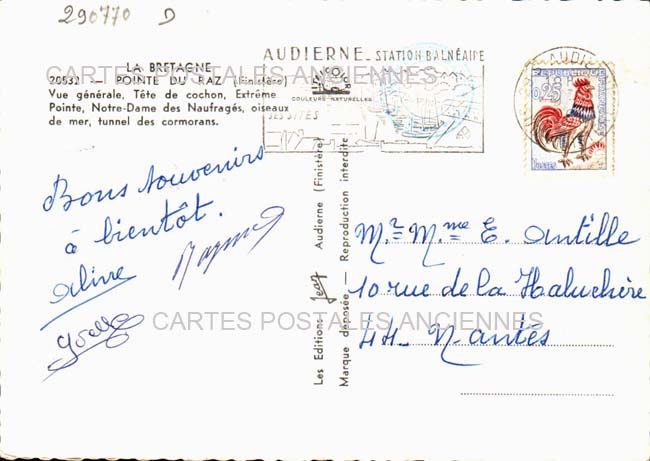 290770 D
LA BRETAGNE
20532 - POINTE DU RAZ (Finistère)
Vue générale, Tête de cochon, Extrême
Pointe, Notre-Dame des Naufragés, oiseaux
de mer, tunnel des cormorans.
AUDIERNE - STATION BALNÉAIRE
COULEURS NATURELLES
SES SITES
AUDIERNE
0,25
Postes
CARTES POSTALES ANCIENNES
Bons souvenirs
à bientôt.
Aline
Raymond
Joelle
Les Editions Jean Audierne (Finistère)
Marque déposée — Reproduction interdite
Mr. M.me E. Antille
10 rue de la Haluchère
44 - Nantes
CARTES POSTALES ANCIENNES